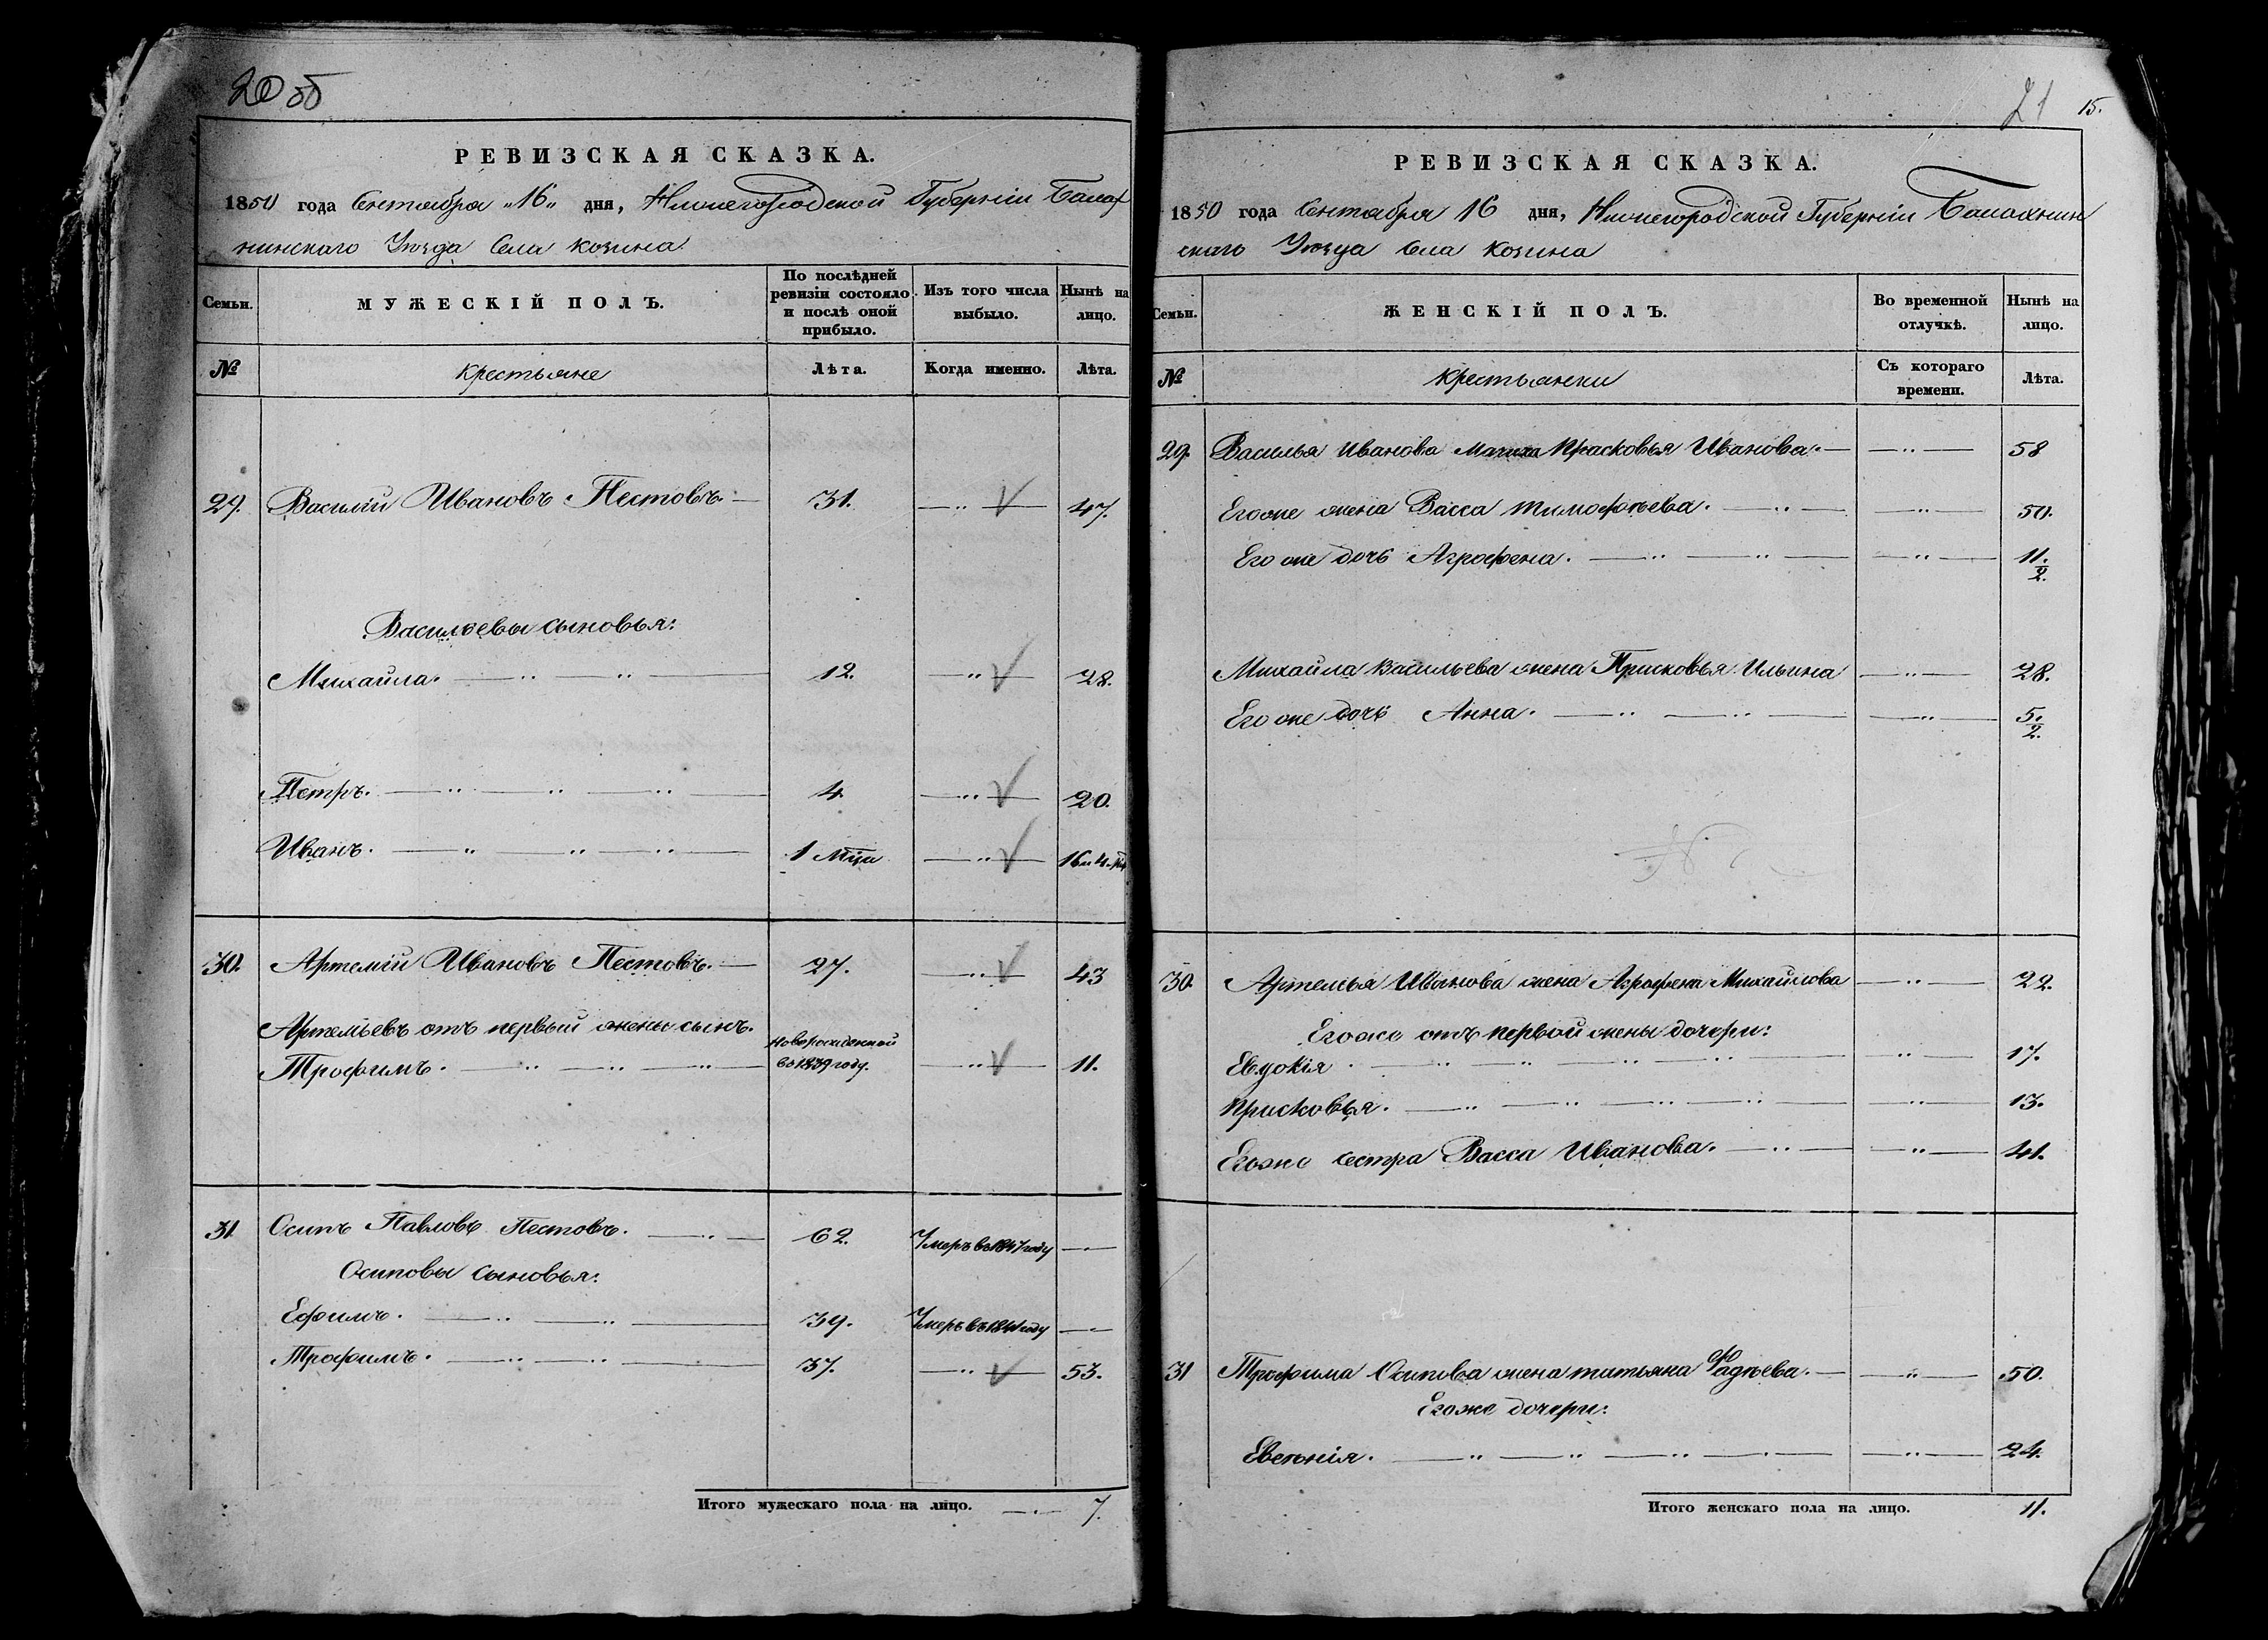 20 об
РЕВИЗСКАЯ СКАЗКА.
1850 года Сентября „16„ дня, Нижегородской Губерніи Балах
нинскаго Уѣзда Села Козина.
Семьи.
МУЖЕСКІЙ ПОЛЪ.
По послѣдней ревизіи состояло и послѣ оной прибыло.
Изъ того числа выбыло.
Нынѣ на лицо.
№
Крестьяне
Лѣта.
Когда именно.
Лѣта.
29. Василій Ивановъ Пестовъ. 31. 47.
Васильевы сыновья:
Михайла. 12. 28.
Петръ. 4. 20.
Иванъ. 1 Мца 16 и 4.
30. Артемій Ивановъ Пестовъ. 27. 43
Артемьевъ отъ первый жены сынъ.
Трофимъ. Новорожденной въ 1839 году. 11.
31 Осипъ Павловъ Пестовъ. 62. Умеръ въ 1847 году
Осиповы сыновья:
Ефимъ. 39. Умеръ въ году
Трофимъ. 37. 53.
Итого мужескаго пола на лицо. 7.
21 15.
РЕВИЗСКАЯ СКАЗКА.
1850 года Сентября 16 дня, Нижегородской Губерніи Балахнин
скаго Уѣзда Села Козина
Семьи.
ЖЕНСКІЙ ПОЛЪ.
Во временной отлучкѣ.
Нынѣ на лицо.
№
Крестьянки
Съ котораго времени.
Лѣта.
29. Василья Иванова Мачиха Прасковья Иванова. 58
Егоже жена Васса Тимофѣева. 50.
Его же дочь Аграфена. 11./2.
Михайла Васильева жена Присковья Ильина 28.
Его же дочь Анна. 5./2.
30. Артемья Иванова жена Аграфена Михайлова 22.
Егоже отъ первой жены дочери:
Евдокія. 17.
Присковья. 13.
Егоже сестра Васса Иванова. 41.
31 Трофима Осипова жена татьяна Фадѣева. 50.
Егоже дочери:
Евгенія. 24.
Итого женскаго пола на лицо. 11.